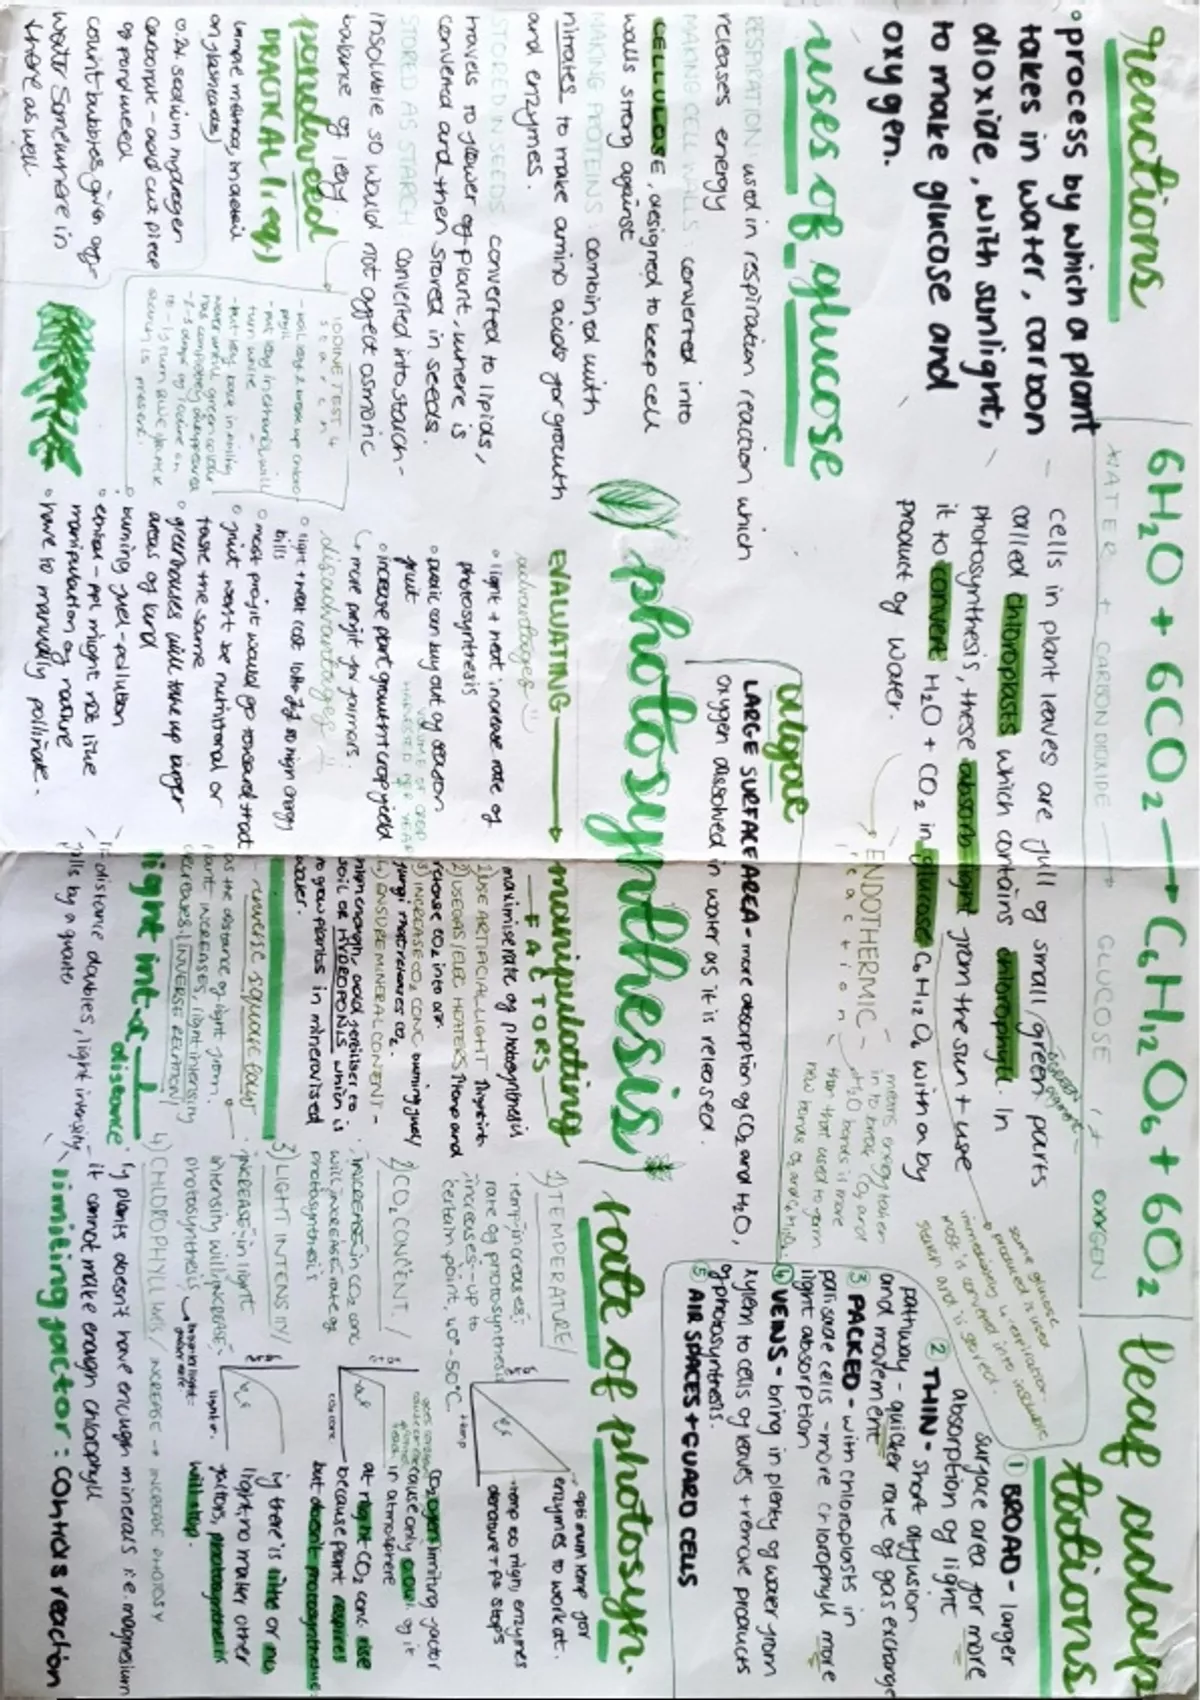 reactions
◦ process by which a plant
takes in water, carbon
dioxide, with sunlight,
to make glucose and
oxygen.
6H₂O + 6CO₂ → C₆H₁₂O₆ + 6O₂
WATER + CARBON DIOXIDE → GLUCOSE + OXYGEN
- cells in plant leaves are full of small green parts
called chloroplasts which contains chlorophyll. In
photosynthesis, these absorb light from the sun + use
it to convert H₂O + CO₂ in glucose C₆H₁₂O₆ with a by
product of water.
ENDOTHERMIC -
reaction
- means energy taken
in to break CO₂ and
H₂O bonds is more
than that used to form
new bonds O₂ and C₆H₁₂O₆.
some glucose
produced is used
immediately in respiration.
most is converted into insoluble
starch and is stored.
leaf adap
tations
① BROAD - larger
surface area for more
absorption of light
② THIN - short diffusion
pathway - quicker rate of gas exchange
and movement
③ PACKED - with chloroplasts in
palisade cells - more chlorophyll more
light absorption
④ VEINS - bring in plenty of water from
xylem to cells of leaves + remove products
of photosynthesis.
⑤ AIR SPACES + GUARD CELLS
uses of glucose
RESPIRATION: used in respiration reaction which
releases energy
MAKING CELL WALLS: converted into
CELLULOSE, designed to keep cell
walls strong against
MAKING PROTEINS: combined with
nitrates to make amino acids for growth
and enzymes.
STORED IN SEEDS: converted to lipids,
travels to flower of plant, where is
converted and then stored in seeds.
STORED AS STARCH: converted into starch-
insoluble so would not affect osmotic
balance of leaf.
algae
LARGE SURFACE AREA - more absorption of CO₂ and H₂O,
oxygen dissolved in water as it is released.
photosynthesis
pondweed
PRACTICAL (169)
(amps method, in detail
on flashcards)
◦ 0.2% sodium hydrogen
carbonate - add cut piece
of pondweed
count bubbles given off-
water somewhere in
there as well.
IODINE TEST 4
starch
- boil leaf 2 break up chloro-
phyll
- put leaf in ethanol, will
turn white
- put leaf back in boiling
water until green colour
has completely disappeared
- 2-3 drops of iodine on
it - if turn blue black
starch is present.
EVALUATING → manipulating
FACTORS
advantages
◦ light + heat increase rate of
photosynthesis
◦ public can buy out of season
fruit
◦ increase plant growth + crop yield
VOLUME OF CROP
HARVESTED PER YEAR
↳ more profit for farmers.
disadvantages
◦ light + heat cost lots of so high energy
bills
◦ most profit would go toward that
◦ fruit won't be nutritional or
taste the same
◦ greenhouses will take up larger
areas of land
◦ burning fuel - pollution
◦ ethical - ppl might not like
manipulation of nature
◦ have to manually pollinate.
maximise rate of photosynthesis
1) USE ARTIFICIAL LIGHT
2) USE GAS/ELEC HEATERS ↑ temp and
release CO₂ into air
3) INCREASE CO₂ CONC burning fuel/
fungi that releases CO₂.
4) ENSURE MINERAL CONTENT -
high enough, add fertiliser to
soil or HYDROPONIS which is
to grow plants in mineralised
water.
- inverse square law
as the distance of light from
plant INCREASES, light intensity
decreases (INVERSE RELATION)
light int α 1
distance
if distance doubles, light intensity
falls by a quarter
rate of photosyn.
1) TEMPERATURE/
- temp increases:
rate of photosynthesis
increases - up to
certain point, 40 - 50°C
temp
- optimum temp for
enzymes to work at.
- temp too high, enzymes
denature + ps stops
2) CO₂ CONCENT. /
- INCREASE: in CO₂ conc
will increase rate of
photosynthesis
CO₂ often limiting factor
cause only 0.04% of it
in atmosphere
at night CO₂ conc. rise
because plant respires
but doesn't photosynthesise
3) LIGHT INTENSITY/
- INCREASE: in light
intensity will increase
photosynthesis
light int.
if there is little or no
light, no matter other
factors, photosynthesis
will stop.
4) CHLOROPHYLL LVLS / INCREASE → INCREASE PHOTOSY
◦ if plants doesn't have enough minerals i.e. magnesium
it cannot make enough chlorophyll
limiting factor: controls reaction